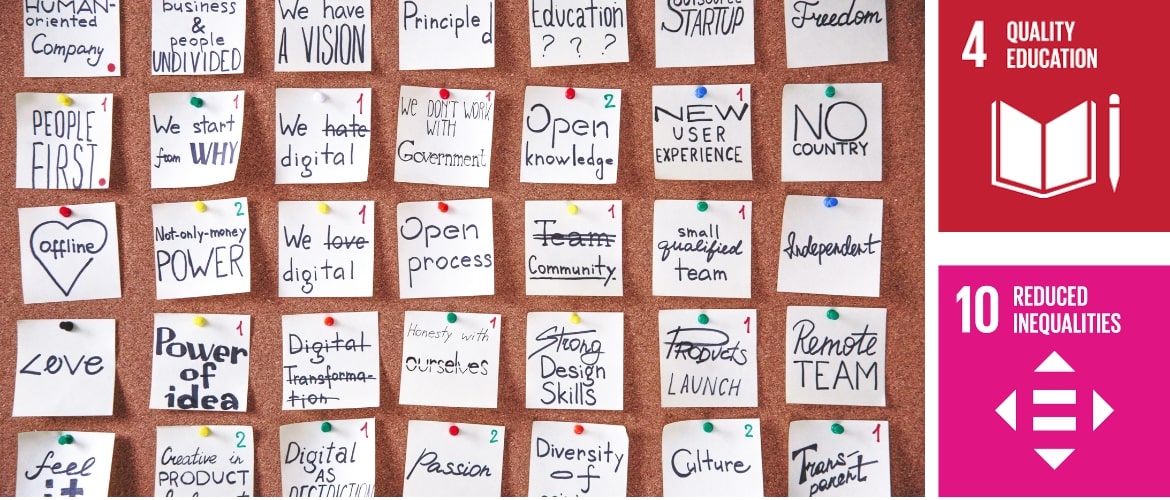 HUMAN-
oriented
Company
business
&
people
UNDIVIDED
We have
A VISION
Principled
Education
? ? ?
STARTUP
Freedom
PEOPLE
FIRST.
1
We start
from WHY
1
We hate
digital
1
We DON'T WORK
WITH
Government
1
Open
knowledge
2
NEW
USER
EXPERIENCE
1
NO
COUNTRY
offline
Not-only-money
POWER
2
We love
digital
1
Open
process
Team
Community.
1
small
qualified
team
1
Independent
LOVE
Power
of
idea
1
Digital
Transforma-
tion
Honesty with
ourselves
1
Strong
Design
Skills
PRODUCTS
LAUNCH
1
Remote
TEAM
feel
it
Creative in
PRODUCT
2
Digital
AS
1
Passion
2
Diversity
of
Culture
2
Trans-
parent
1
4 QUALITY
EDUCATION
10 REDUCED
INEQUALITIES